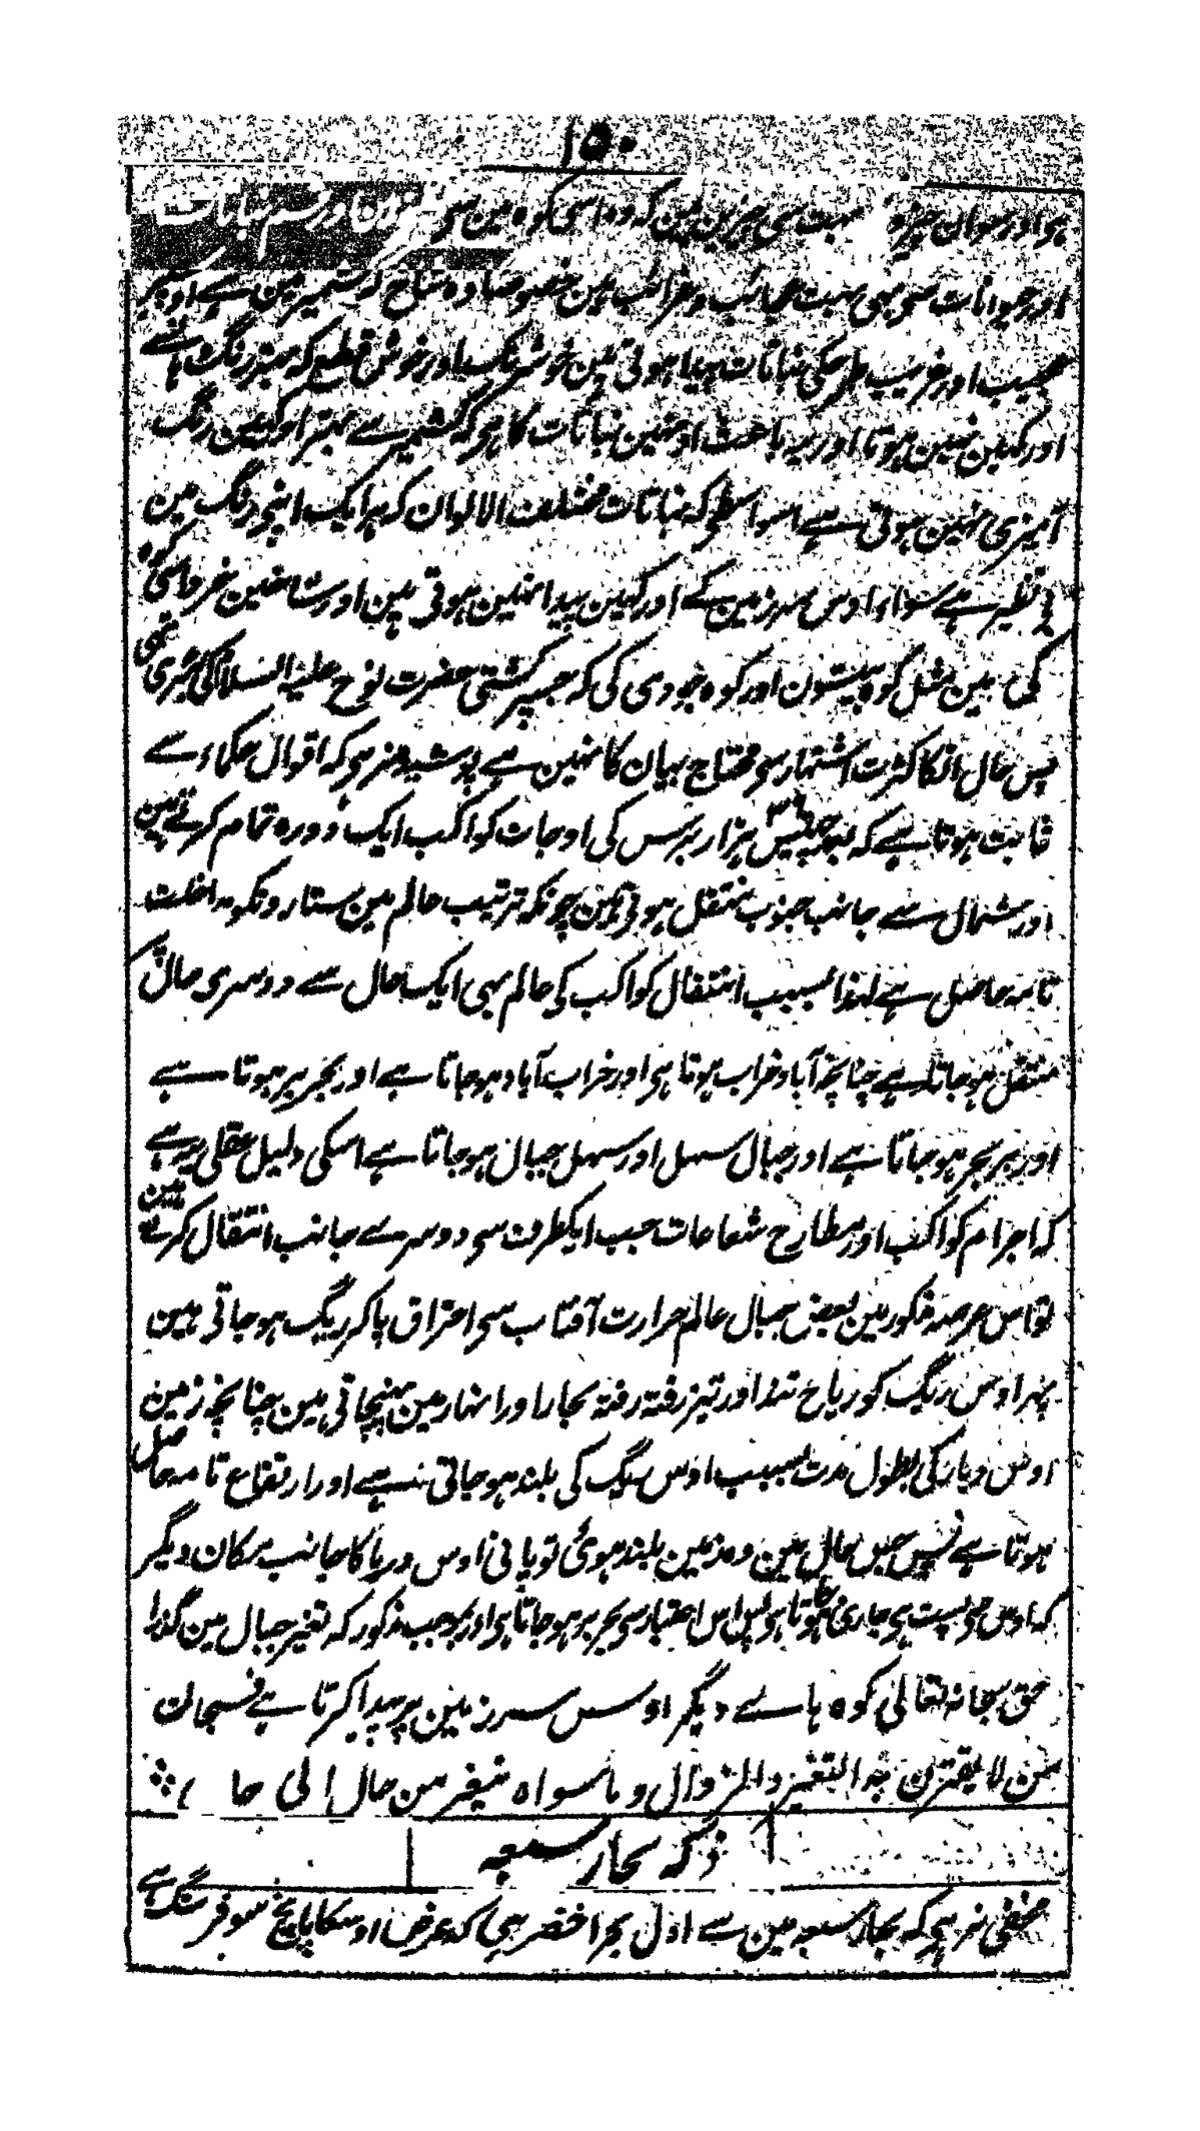 ۱۵۰
ہو اور سوان چیزونکے بہت سی چیزین ہین کہ وہ اسی کوہ مین سے
اور حیوانات سے بہی بہت عجائب و غرائب ہین خصوصاً وہ شاخ کہ کشمیر مین ہے اوسپر
عجیب اور غریب طرحکی نباتات پیدا ہوتی ہین خوشرنگ اور خوش قطع کہ سبز رنگ
اور کہین نہین ہوتا اور یہ باعث اونہین نباتات کا ہی کہ کشمیر سے بہتر اور کہین رنگ
آمیزی نہین ہوتی ہے اسواسطے کہ نباتات مختلف الالوان کہ ہر ایک اپنی رنگ مین
بی نظیر ہے سواے اوس سرزمین کے اور کہین پیدا نہین ہوتی ہین اور شاخین اسی کوہ
کی ہین مثل کوہ بیستون اور کوہ جودی کی کہ جسپر کشتی حضرت نوح علیہ السلام کی ٹہری تہی
پس حال انکا کثرت اشتہار سے محتاج بیان کا نہین ہے پوشیدہ نرہی کہ اقوال حکماء سے
ثابت ہوتا ہے کہ بعد چہتیس ۳۶ ہزار برس کی اوجات کواکب ایک دورہ تمام کرتے ہین
اور شمال سے جانب جنوب منتقل ہوتی ہین چونکہ ترتیب عالم مین ستارونکو مداخلت
تامہ حاصل ہے لہذا بسبب انتقال کواکب کی عالم بہی ایک حال سے دوسری حال پر
منتقل ہو جاتا ہے چنانچہ آباد خراب ہوتا ہی اور خراب آباد ہو جاتا ہے اور بحر بر ہوتا ہے
اور بر بحر ہو جاتا ہے اور جبال سہل اور سہل جبال ہو جاتا ہے اسکی دلیل عقلی یہ ہے
کہ اجرام کواکب اور مطارح شعاعات جب ایکطرف سے دوسرے جانب انتقال کرتے ہین
تو اس عرصہ مذکور مین بعض جبال عالم حرارت آفتاب سے احتراق پاکر ریگ ہو جاتی ہین
پہر اوس ریگ کو ریاح تند اور تیز رفتہ رفتہ بحار اور انہار مین پہنچاتی ہین چنانچہ زمین
اوس دیار کی بطول مدت بسبب اوس ریگ کی بلند ہو جاتی ہے اور ارتفاع تامہ حاصل
ہوتا ہے پس جس حال مین وہ زمین بلند ہوئی تو پانی اوس دریا کا جانب مکان دیگر
کہ اوس سے پست ہی جاری ہوتا ہی پس اس اعتبار سے بحر بر ہو جاتا ہی اور بموجب مذکور کہ تغیر جبال مین گذرا
حق سبحانہ تعالیٰ کوہ ہاے دیگر اوس سرزمین پر پیدا کرتا ہے فسبحان
من لا یقترن بہ التغیر والزوال و ماسواہ متغیر من حال الی حا ل
ذکر بحار سبعہ
مخفی نرہی کہ بحار سبعہ مین سے اول بحر اخضر ہی کہ عرض اوسکا پانچ سو فرسنگ ہے